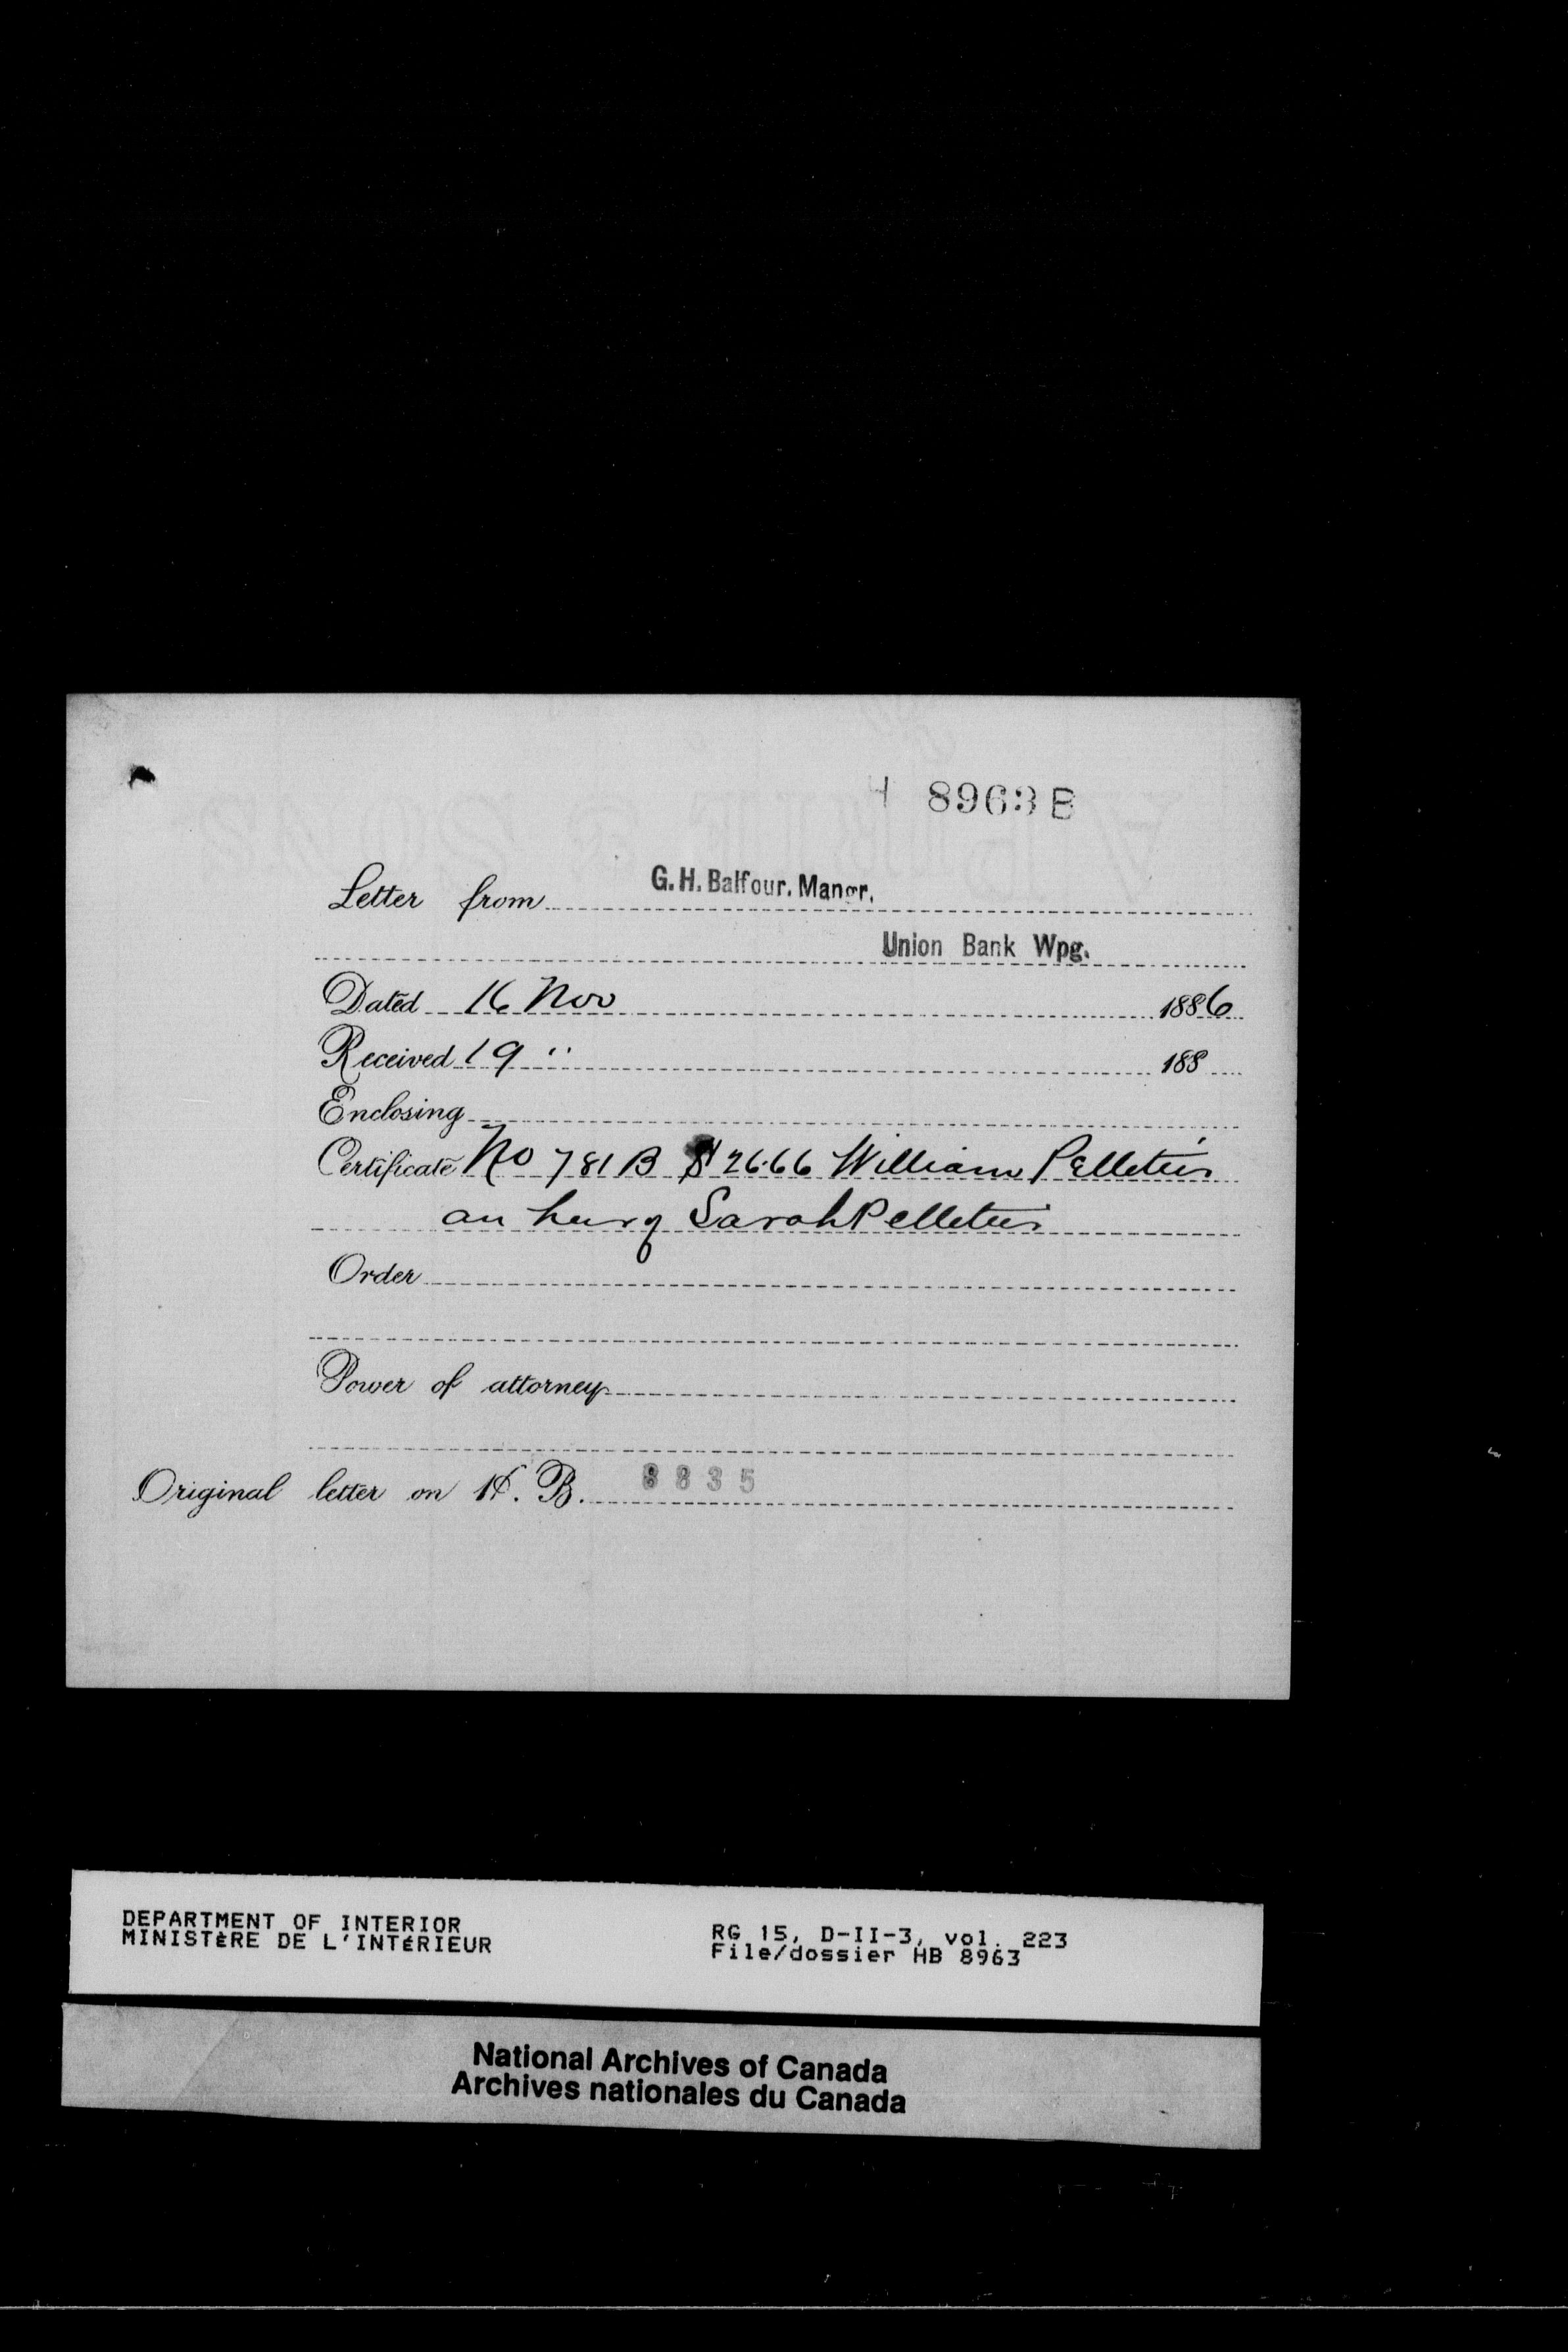 H 8963 B
Letter from G.H. Balfour. Mangr.
Union Bank Wpg.
Dated 16 Nov 1886
Received 19 " 188
Enclosing
Certificate No 781 B $ 26.66 William Pelletier
an heir of Sarah Pelletier
Order
Power of attorney
Original letter on H. B. 8835
DEPARTMENT OF INTERIOR
MINISTÈRE DE L'INTÉRIEUR
RG 15, D-II-3, vol. 223
File/dossier HB 8963
National Archives of Canada
Archives nationales du Canada